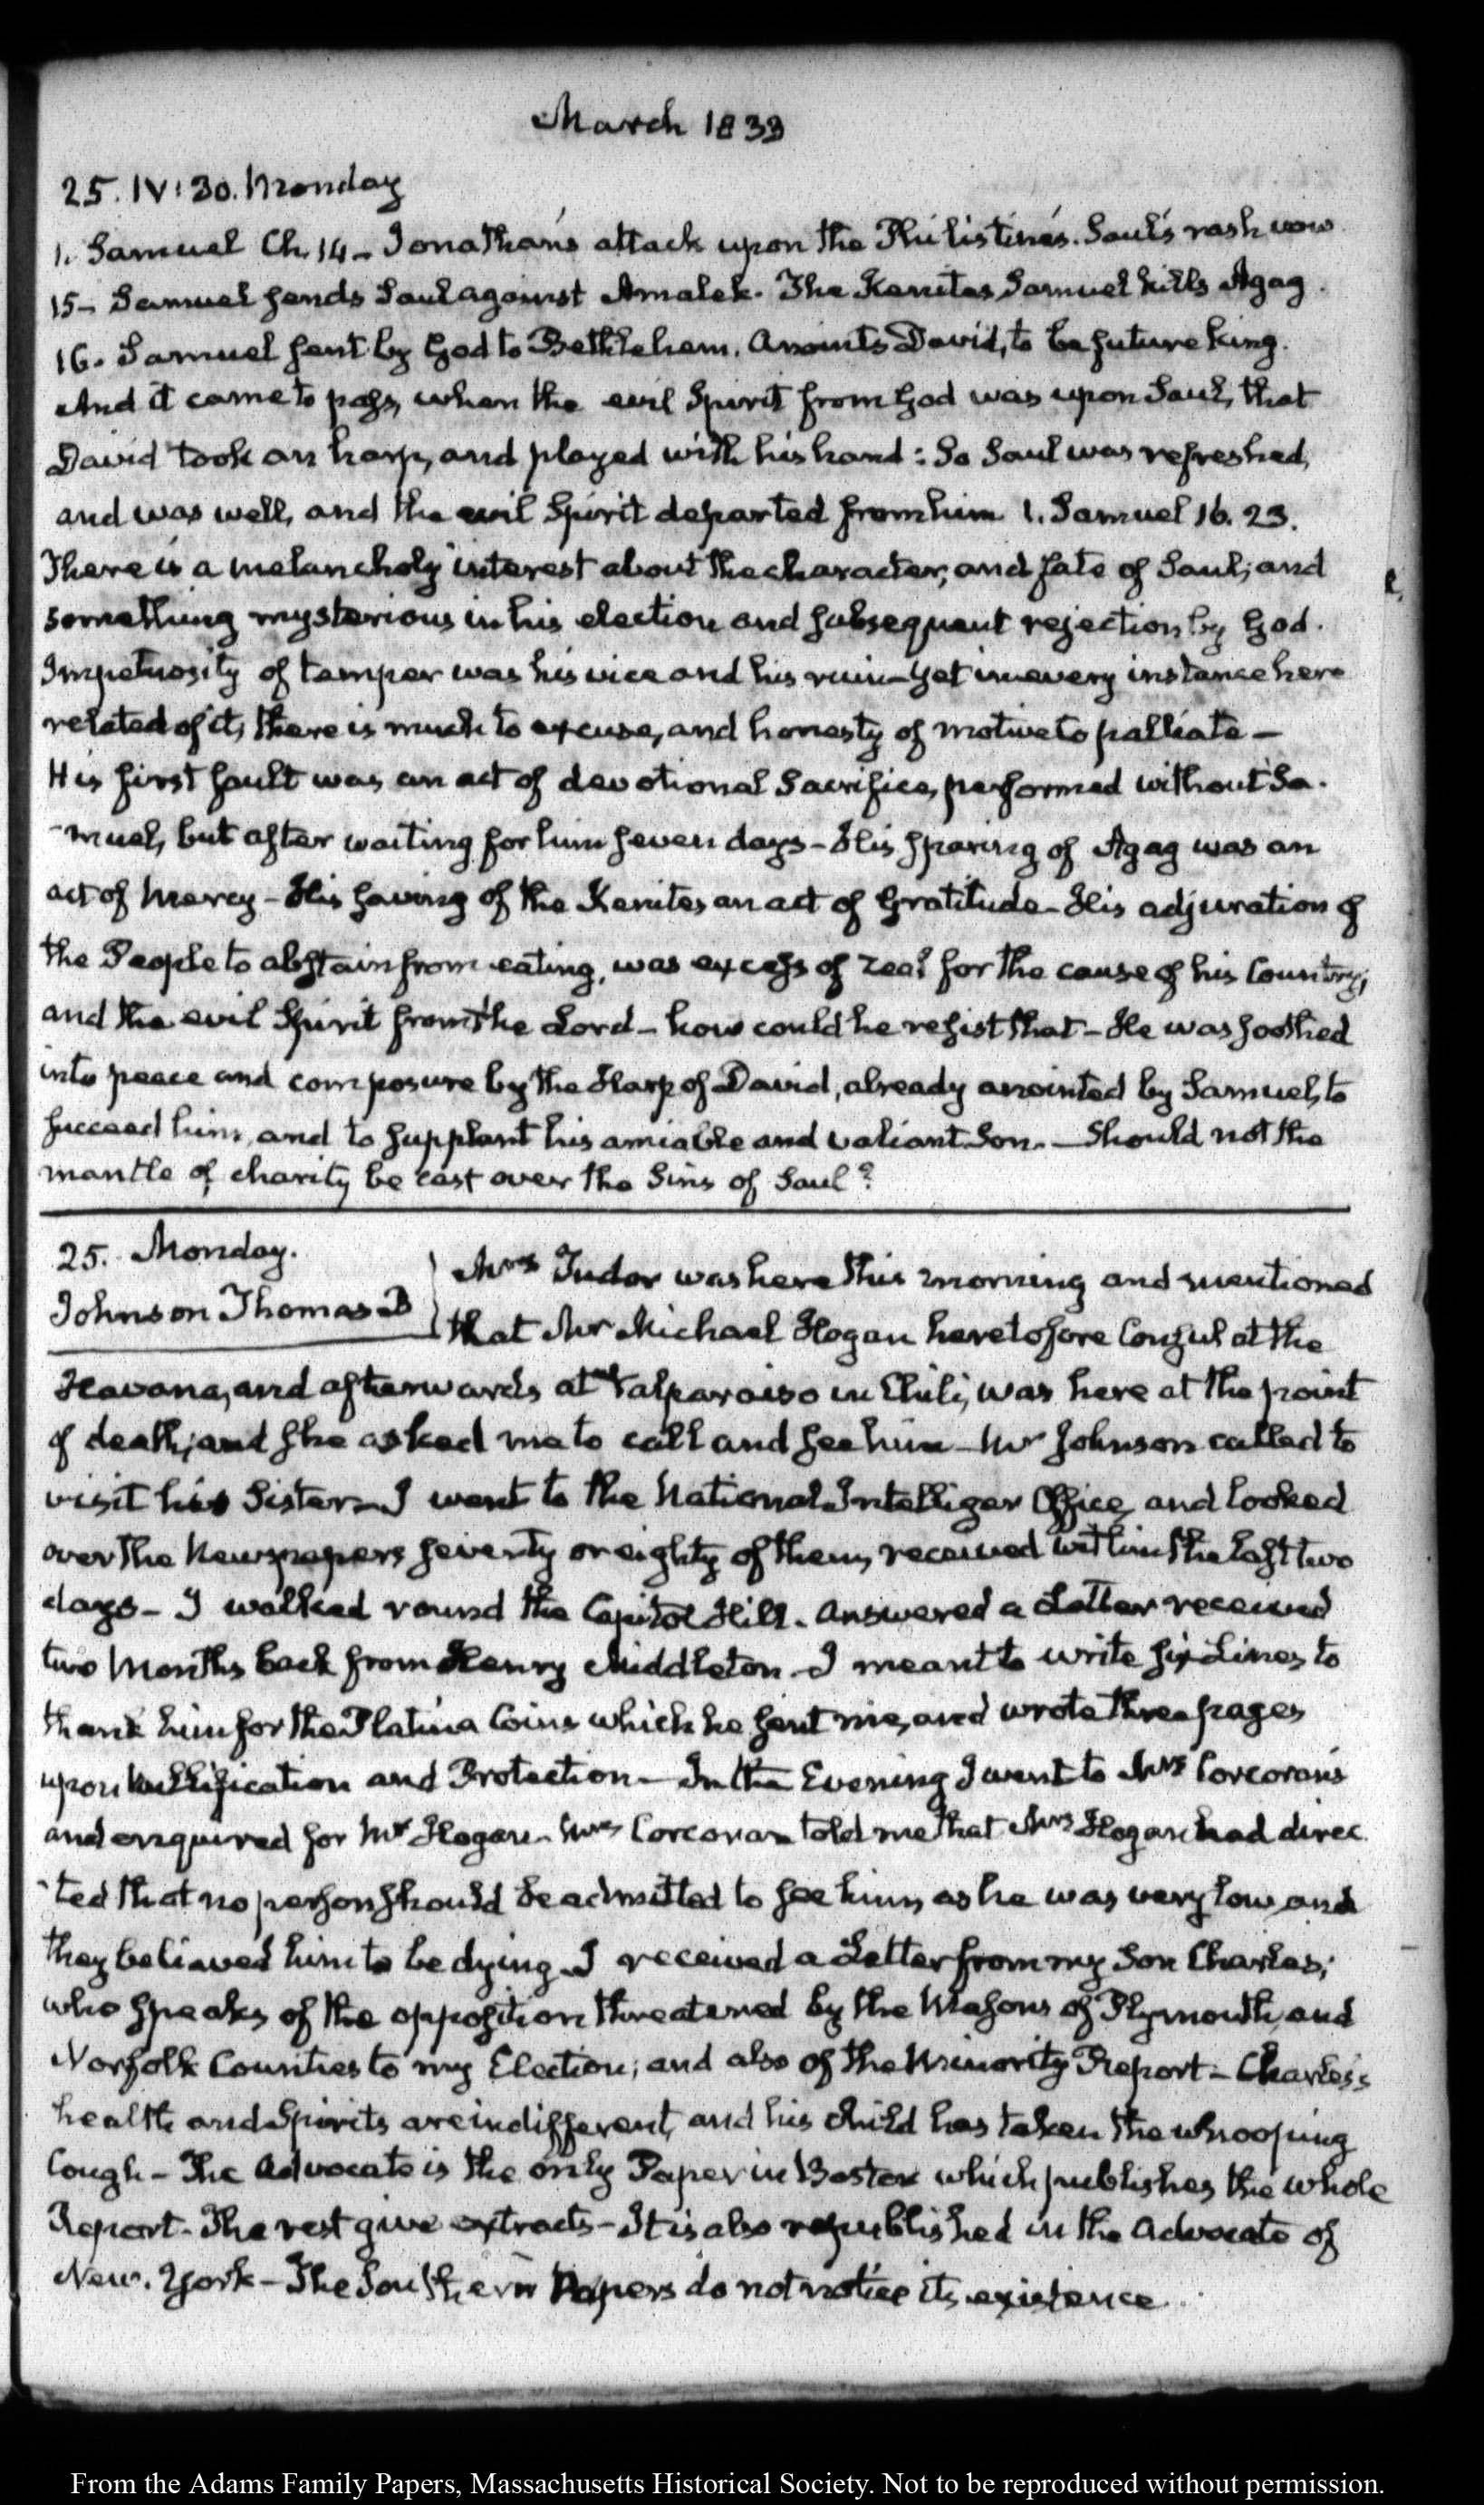 March 1833
25. IV: 30. Monday
1. Samuel Ch. 14 - Jonathan's attack upon the Philistines. Saul's rash vow.
15 - Samuel sends Saul against Amalek. The Kenites, Samuel kills Agag.
16. Samuel sent by God to Bethlehem. Anoints David, to be future king.
And it came to pass, when the evil Spirit from God was upon Saul, that
David took an harp, and played with his hand: So Saul was refreshed,
and was well, and the evil Spirit departed from him 1. Samuel 16. 23.
There is a melancholy interest about the character, and fate of Saul; and
something mysterious in his election and subsequent rejection by God.
Impetuosity of temper was his vice and his ruin - Yet in every instance here
related of it, there is much to excuse, and honesty of motive to palliate -
His first fault was an act of devotional Sacrifice, performed without Sa-
-muel, but after waiting for him seven days - His sparing of Agag was an
act of Mercy - His saving of the Kenites an act of Gratitude - His adjuration of
the People to abstain from eating, was excess of zeal for the cause of his Country,
and the evil Spirit from the Lord - how could he resist that - He was soothed
into peace and composure by the Harp of David, already anointed by Samuel, to
succeed him, and to supplant his amiable and valiant Son. - Should not the
mantle of charity be cast over the Sins of Saul?
25. Monday.
Johnson Thomas B
Mrs Tudor was here this morning and mentioned
that Mr Michael Hogan heretofore Consul at the
Havana, and afterwards at Valparaiso in Chili, was here at the point
of death; and she asked me to call and see him - Mr Johnson called to
visit his Sister - I went to the National Intelliger Office, and looked
over the Newspapers seventy or eighty of them, received within the last two
days - I walked round the Capitol Hill. Answered a Letter received
two Months back from Henry Middleton - I meant to write six Lines to
thank him for the Platina Coins which he sent me, and wrote three pages
upon Nullification and Protection - In the Evening I went to Mrs Corcoran's
and enquired for Mr Hogan. Mrs Corcoran told me that Mrs Hogan had direc-
-ted that no person should be admitted to see him, as he was very low, and
they believed him to be dying. I received a Letter from my Son Charles;
who speaks of the opposition threatened by the Masons of Plymouth, and
Norfolk Counties to my Election; and also of the Minority Report - Charles's
health and Spirits are indifferent, and his child has taken the whooping
Cough - The Advocate is the only Paper in Boston which publishes the whole
Report - The rest give extracts - It is also republished in the Advocate of
New-York - The Southern Papers do not notice its existence.
From the Adams Family Papers, Massachusetts Historical Society. Not to be reproduced without permission.